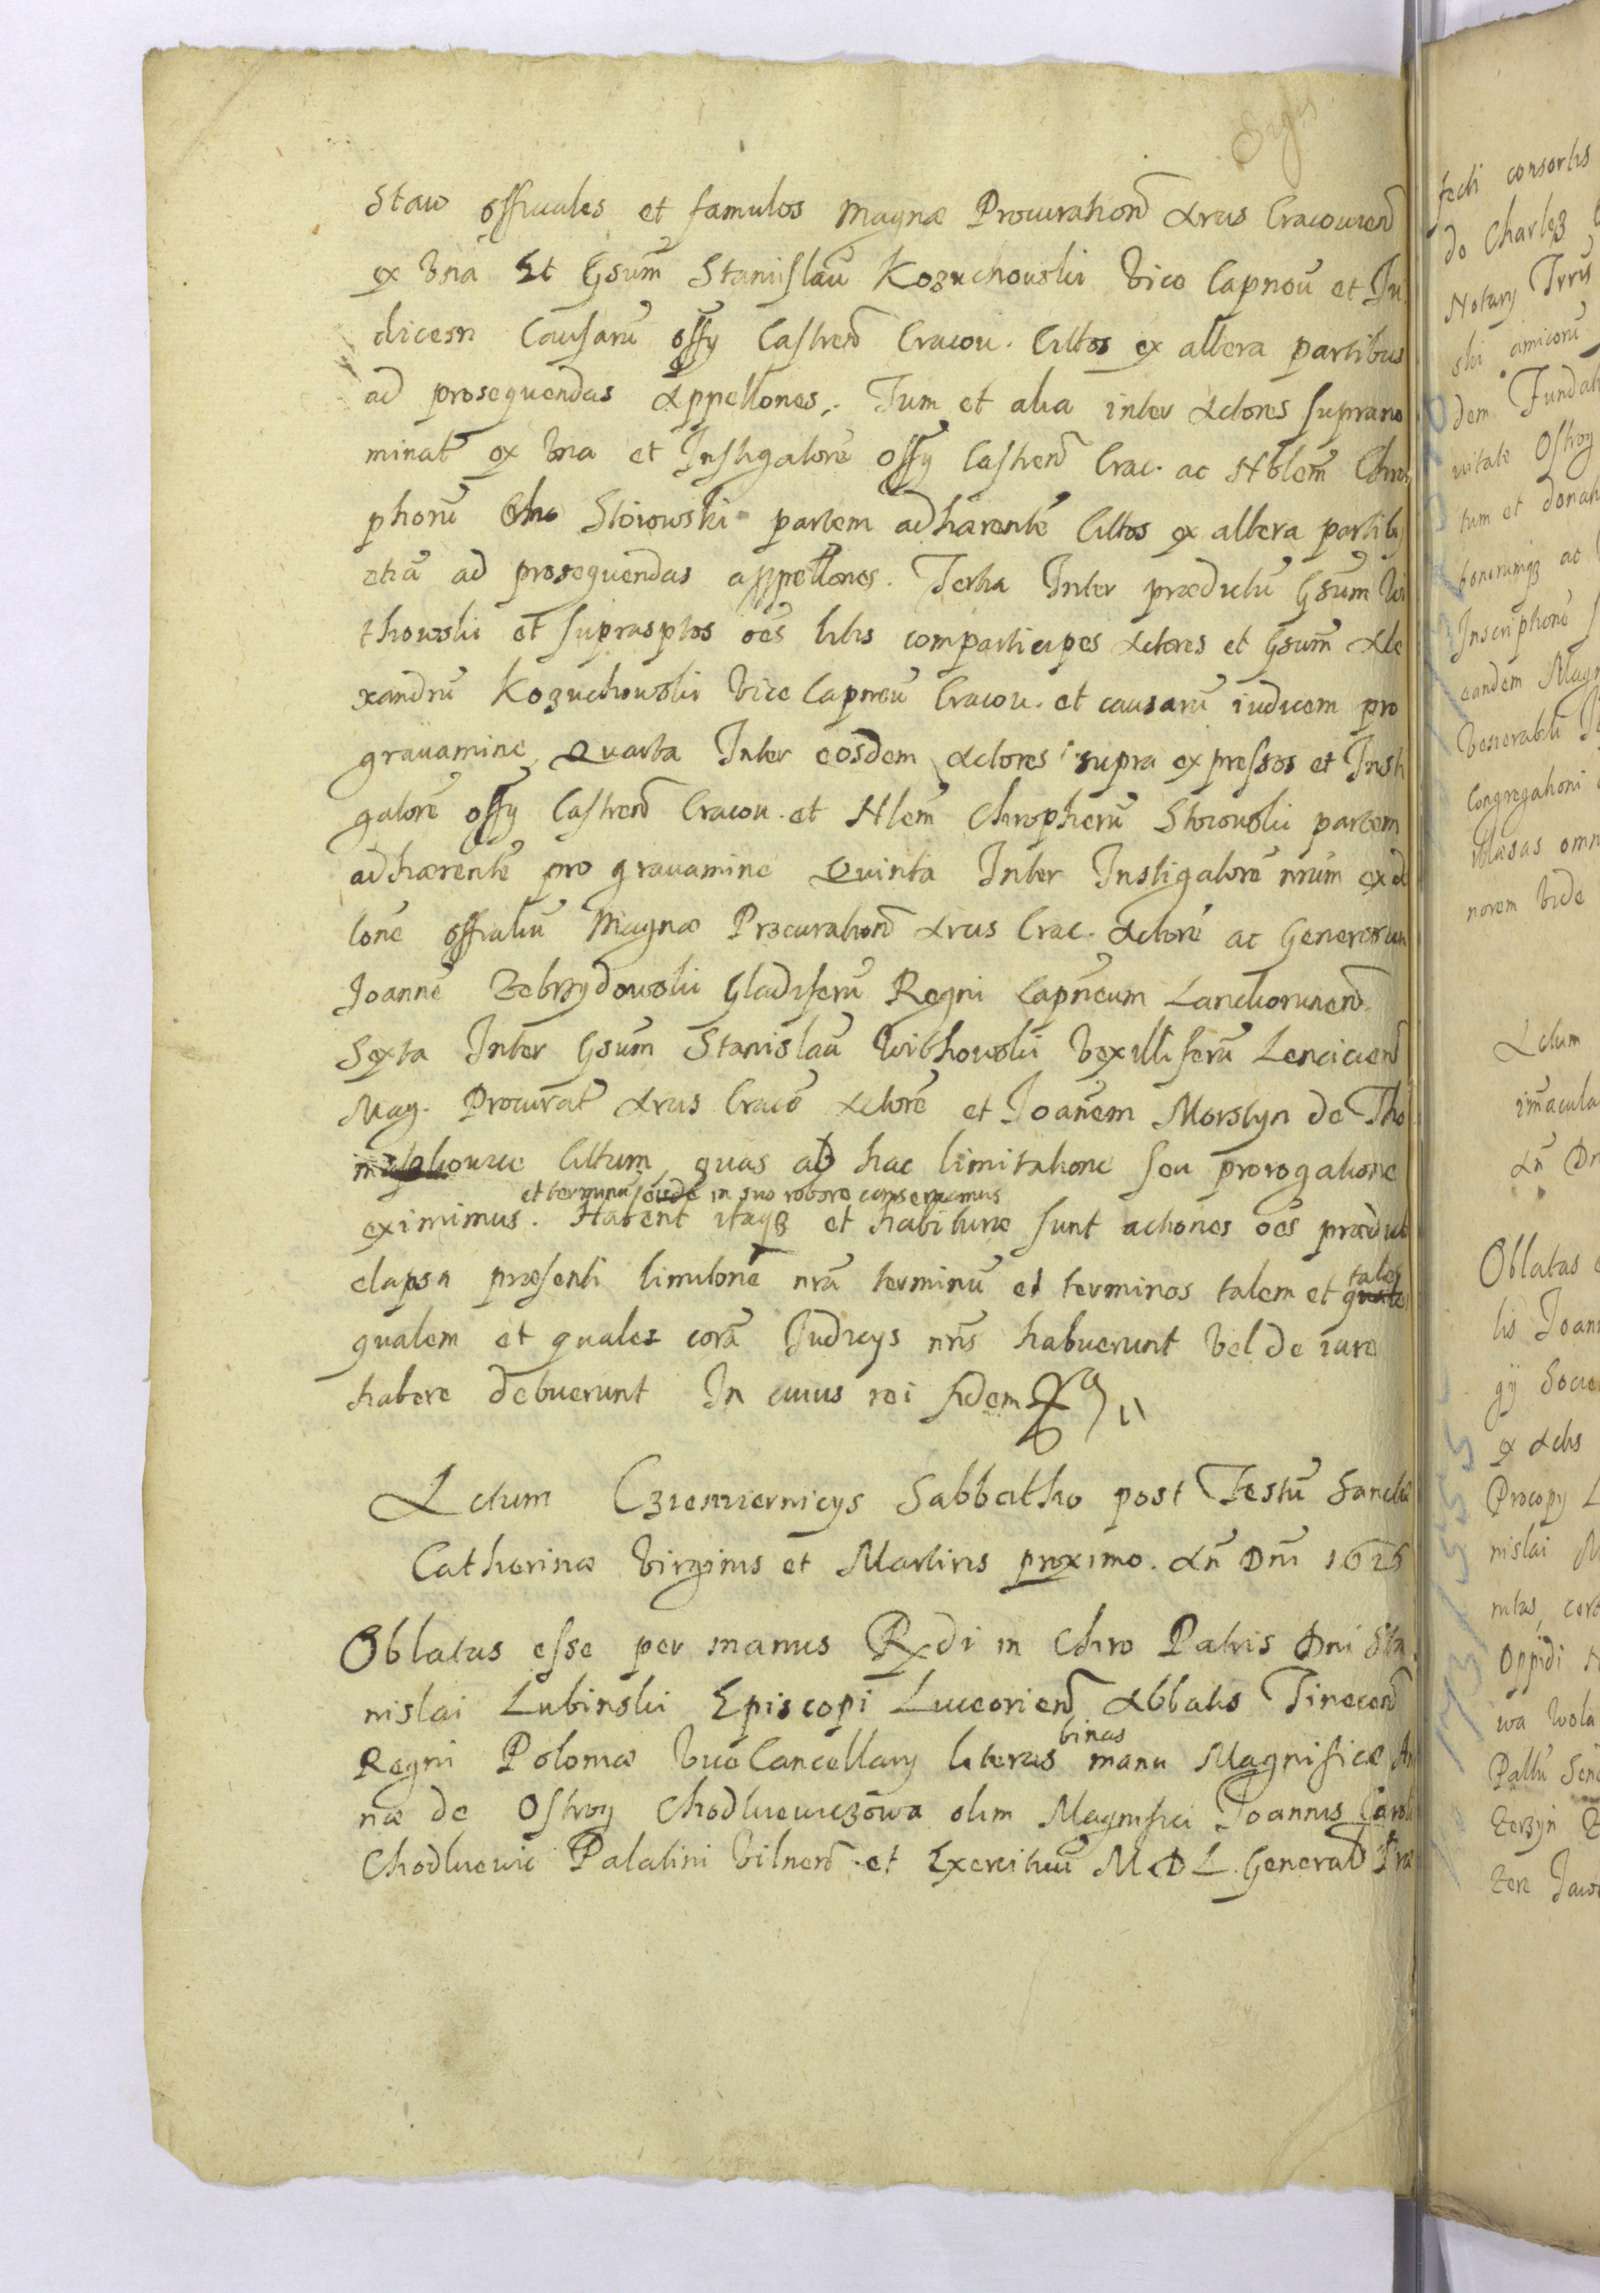 Staw officiales et famulos Magnæ Procurationē Arcis Cracouien̄
ex Vna Et Gsum̄ Stanislaū Kozuchowski Vice Capneū et Iu
dicem Causarū offy Castren̄ Cracou. Cittos ex altera partibus
ad prosequendas Appellones. Tum et alia inter Actores suprano
minat ex Vna et Instigatorē offy Castren̄ Crac. ac Nblem̄ Chro
phorū Stoiowski partem adhærentē Cittos ex altera partibꝫ
etiā ad prosequendas appellones. Tertia Inter prædictū Gsum̄ Wi
thowski et suprasptos oēs litis comparticipes Actores et Gsum̄ Ale
xandrū Kozuchowski Vice Capneū Cracou. et causarū iudicem pro
grauamine, Quarta Inter eosdem Actores supra expressos et Insti
gatorē offy Castren̄ Cracou. et Nlem̄ Chropherū Stoiowski partem
adhærentē pro grauamine Quinta Inter Instigatorē nrum̄ ex de
lonē officialiū Magnæ Procurationē Arcis Crac. Actorē ac Generosum
Joannē Zebrzydowski Gladiferū Regni Capneum Lanckorunen̄
Sexta Inter Gsum̄ Stanislaū Withowski Vexilliferū Lencicien̄
Mag. Procurat̄ Arcis Cracō Actorē et Joanem Morstyn de Tho
Cittum, quas ab hac limitatione seu prorogatione
et terminū eiusdē in suo robore conseruamus
eximimus. Habent itaqꝫ et habituræ sunt actiones oēs prædict
elapsa præsenti limitonē nrā terminū et terminos talem et tales
qualem et quales corā Iudicys nris̄ habuerunt Vel de iure
habere debuerunt In cuius rei fidem
Actum Czierniernicys Sabbatho post Festū Sanctæ
Catherinæ Virginis et Martiris proximo. An̄ Dni 1625
Oblatas esse per manus Rxdi in Chro Patris Dni Sta
nislai Lubinski Episcopi Luceorien̄ Abbatis Tinecen̄
Regni Poloniæ ViceCancellary literas binas manu Magnificæ An
næ de Ostrog Chodkieuiczōwa olim Magnifici Joannis Caroli
Chodkieuic Palatini Vilnen̄ et Exercituū M D L. General Præ
fecti consortis
do Charlęz
Notary Iuris
ski amicorū
dem Fundat
uitate Ostrog
tum et donat
honorumqꝫ ac
Inscriptionē
eandem Magn
Venerabili
Congregationi
illæsas omn
norem Vide
Actum
im̄acula
An̄ Dn
Oblatas
lis Joan
gÿ Socie
ex Actis
Procopy
nislai M
nitas, cert
Oppidi
wa Wola
Pallū Send